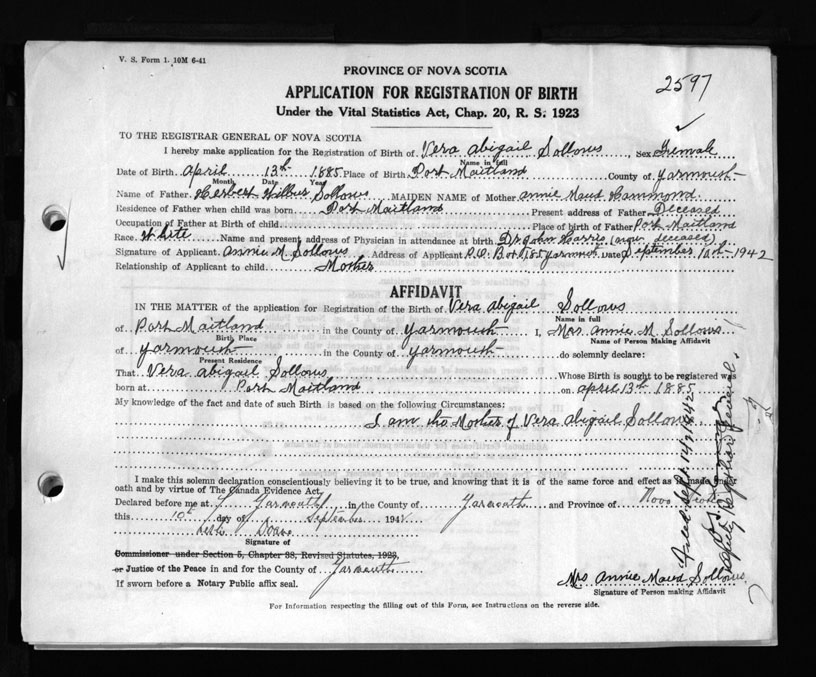 V. S. Form 1. 10M 6-41
PROVINCE OF NOVA SCOTIA
2597
APPLICATION FOR REGISTRATION OF BIRTH
Under the Vital Statistics Act, Chap. 20, R. S. 1923
TO THE REGISTRAR GENERAL OF NOVA SCOTIA
I hereby make application for the Registration of Birth of Vera Abigail Sollows, Sex Female
Name in full
Date of Birth April 13th 1885 Place of Birth Port Maitland County of Yarmouth
Month Date Year
Name of Father Herbert Wilbur Sollows MAIDEN NAME of Mother Annie Maud Hammond
Residence of Father when child was born Port Maitland Present address of Father Deceased
Occupation of Father at Birth of child Place of Birth of Father Port Maitland
Race White Name and present address of Physician in attendance at birth Dr John Harris (now deceased)
Signature of Applicant Annie M. Sollows Address of Applicant P.O. Box 185 Yarmouth Date September 10th 1942
Relationship of Applicant to child Mother
AFFIDAVIT
IN THE MATTER of the application for Registration of the Birth of Vera Abigail Sollows
Name in full
of Port Maitland in the County of Yarmouth I, Mrs. Annie M. Sollows
Birth Place Name of Person Making Affidavit
of Yarmouth in the County of Yarmouth do solemnly declare:
Present Residence
That Vera Abigail Sollows Whose Birth is sought to be registered was
born at Port Maitland on April 13th 1885
My knowledge of the fact and date of such Birth is based on the following Circumstances:
I am the Mother of Vera Abigail Sollows
I make this solemn declaration conscientiously believing it to be true, and knowing that it is of the same force and effect as if made under
oath and by virtue of The Canada Evidence Act.
Declared before me at Yarmouth in the County of Yarmouth and Province of Nova Scotia
this 10th day of September 1942
Doane
Signature of
Commissioner under Section 5, Chapter 38, Revised Statutes, 1923,
or Justice of the Peace in and for the County of Yarmouth
If sworn before a Notary Public affix seal.
Mrs Annie Maud Sollows
Signature of Person making Affidavit
For Information respecting the filling out of this Form, see Instructions on the reverse side.
Filed Sept 14/1942
Deputy Registrar General